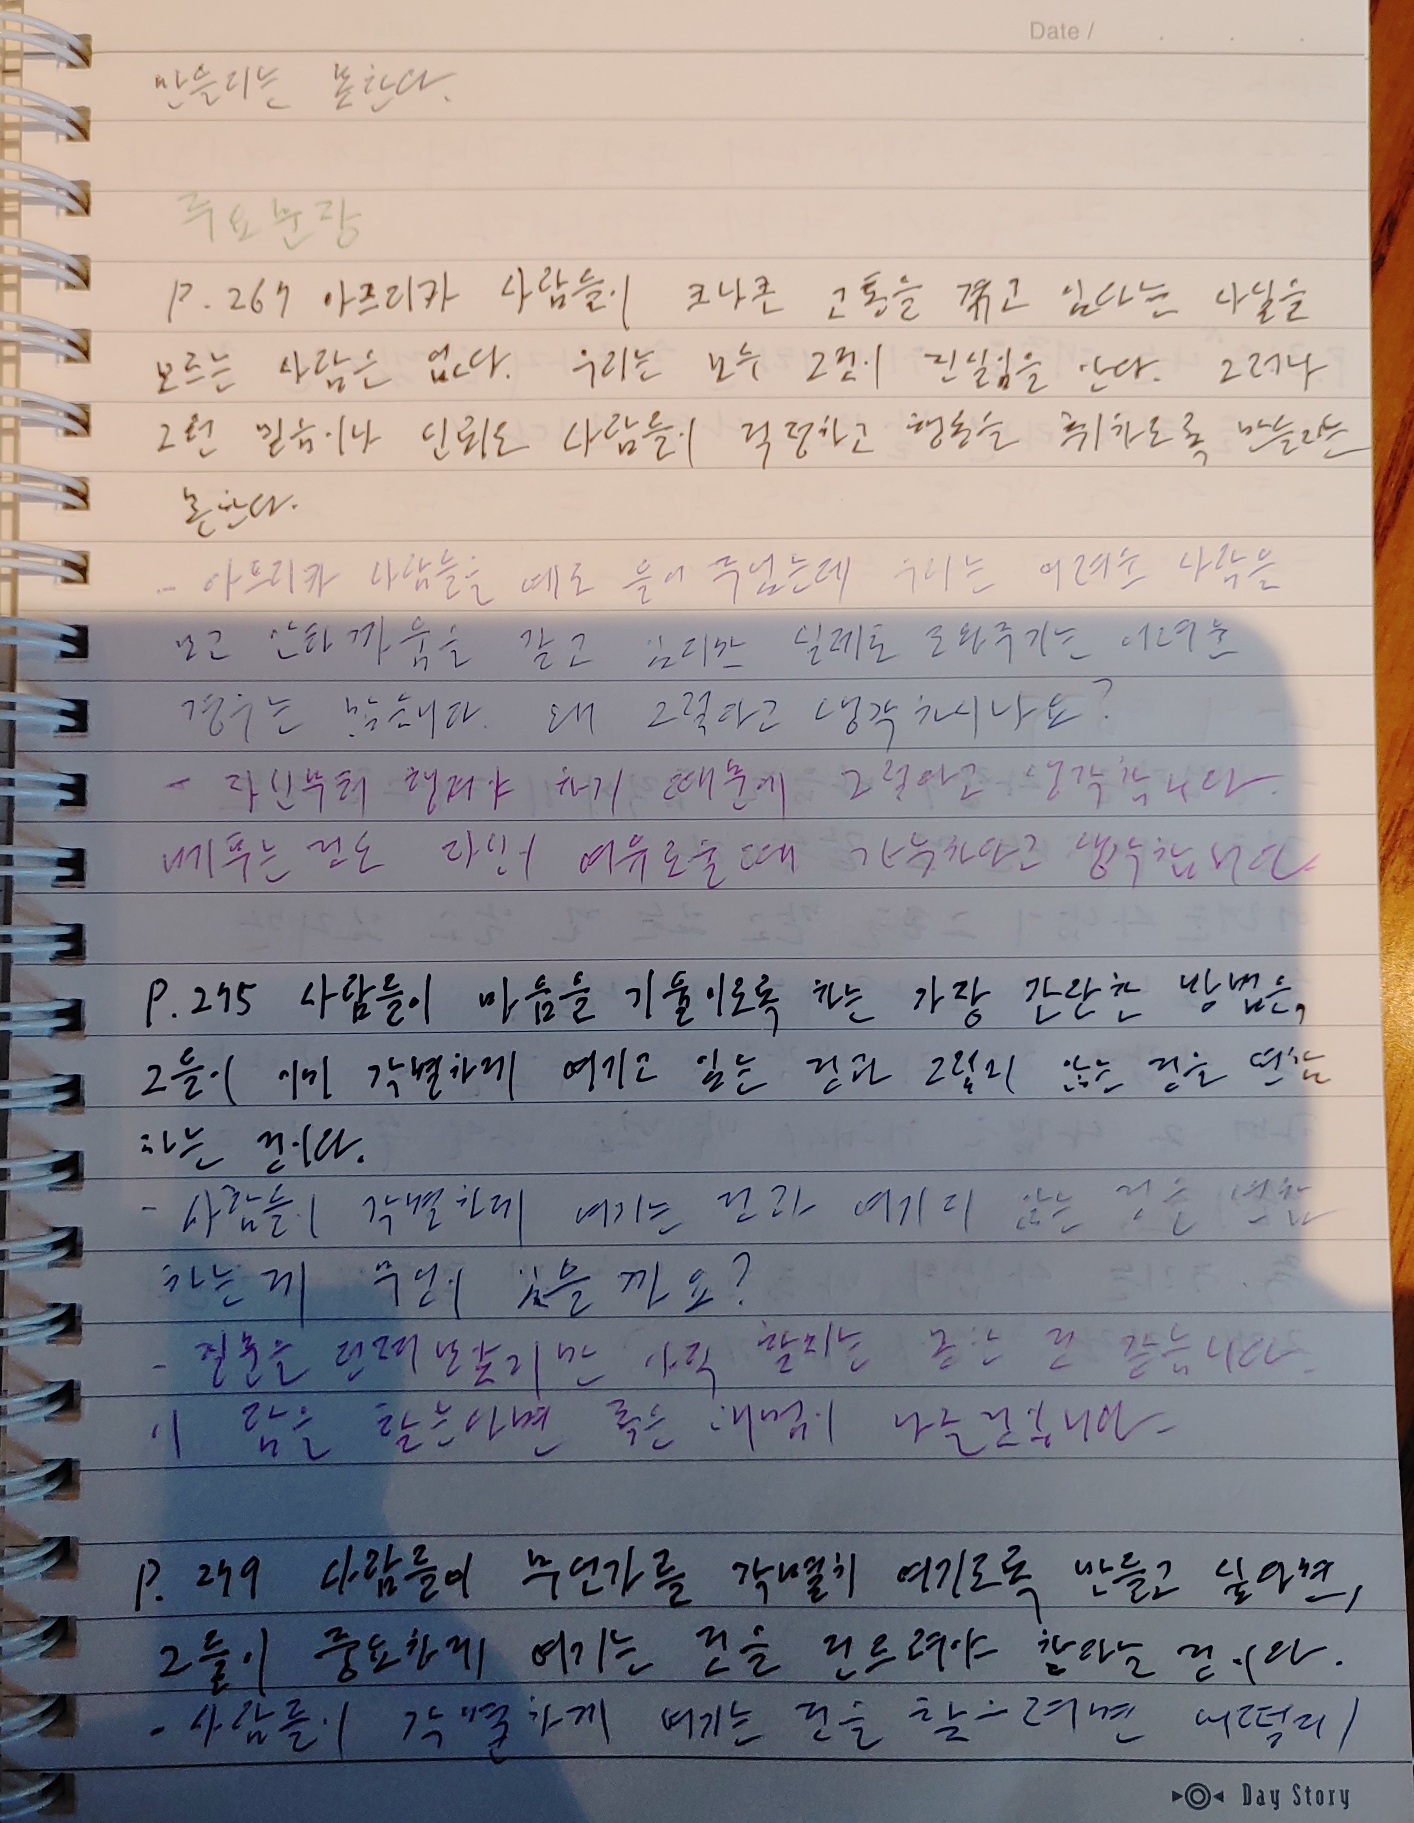 Date /
만들지는 못한다.
주요문장
P. 267 아프리카 사람들이 크나큰 고통을 겪고 있다는 사실을
모르는 사람은 없다. 우리는 모두 그것이 진실임을 안다. 그러나
그런 믿음이나 신뢰도 사람들이 걱정하고 행동을 취하도록 만들지는
못한다.
- 아프리카 사람들을 예로 들어 주었는데 우리는 어려운 사람을
보고 안타까움을 갖고 있지만 실제로 도와주기는 어려운
경우는 많습니다. 왜 그렇다고 생각하시나요?
- 자신부터 챙겨야 하기 때문에 그렇다고 생각합니다.
베푸는 것도 자신이 여유로울때 가능하다고 생각합니다
P. 275 사람들이 마음을 기울이도록 하는 가장 간단한 방법은,
그들이 이미 각별하게 여기고 있는 것과 그렇지 않는 것을 연합
하는 것이다.
- 사람들이 각별하게 여기는 것과 여기지 않는 것을 연합
하는게 무엇이 있을까요?
- 질문을 던져보았지만 사실 할지는 것 같습니다.
이 답을 찾는다면 혹은 나올것입니다.
P. 279 사람들이 무언가를 각별히 여기도록 만들고 싶다면,
그들이 중요하게 여기는 것을 건드려야 한다는 것이다.
- 사람들이 각별하게 여기는 것을 찾으려면 어떻게
Day Story